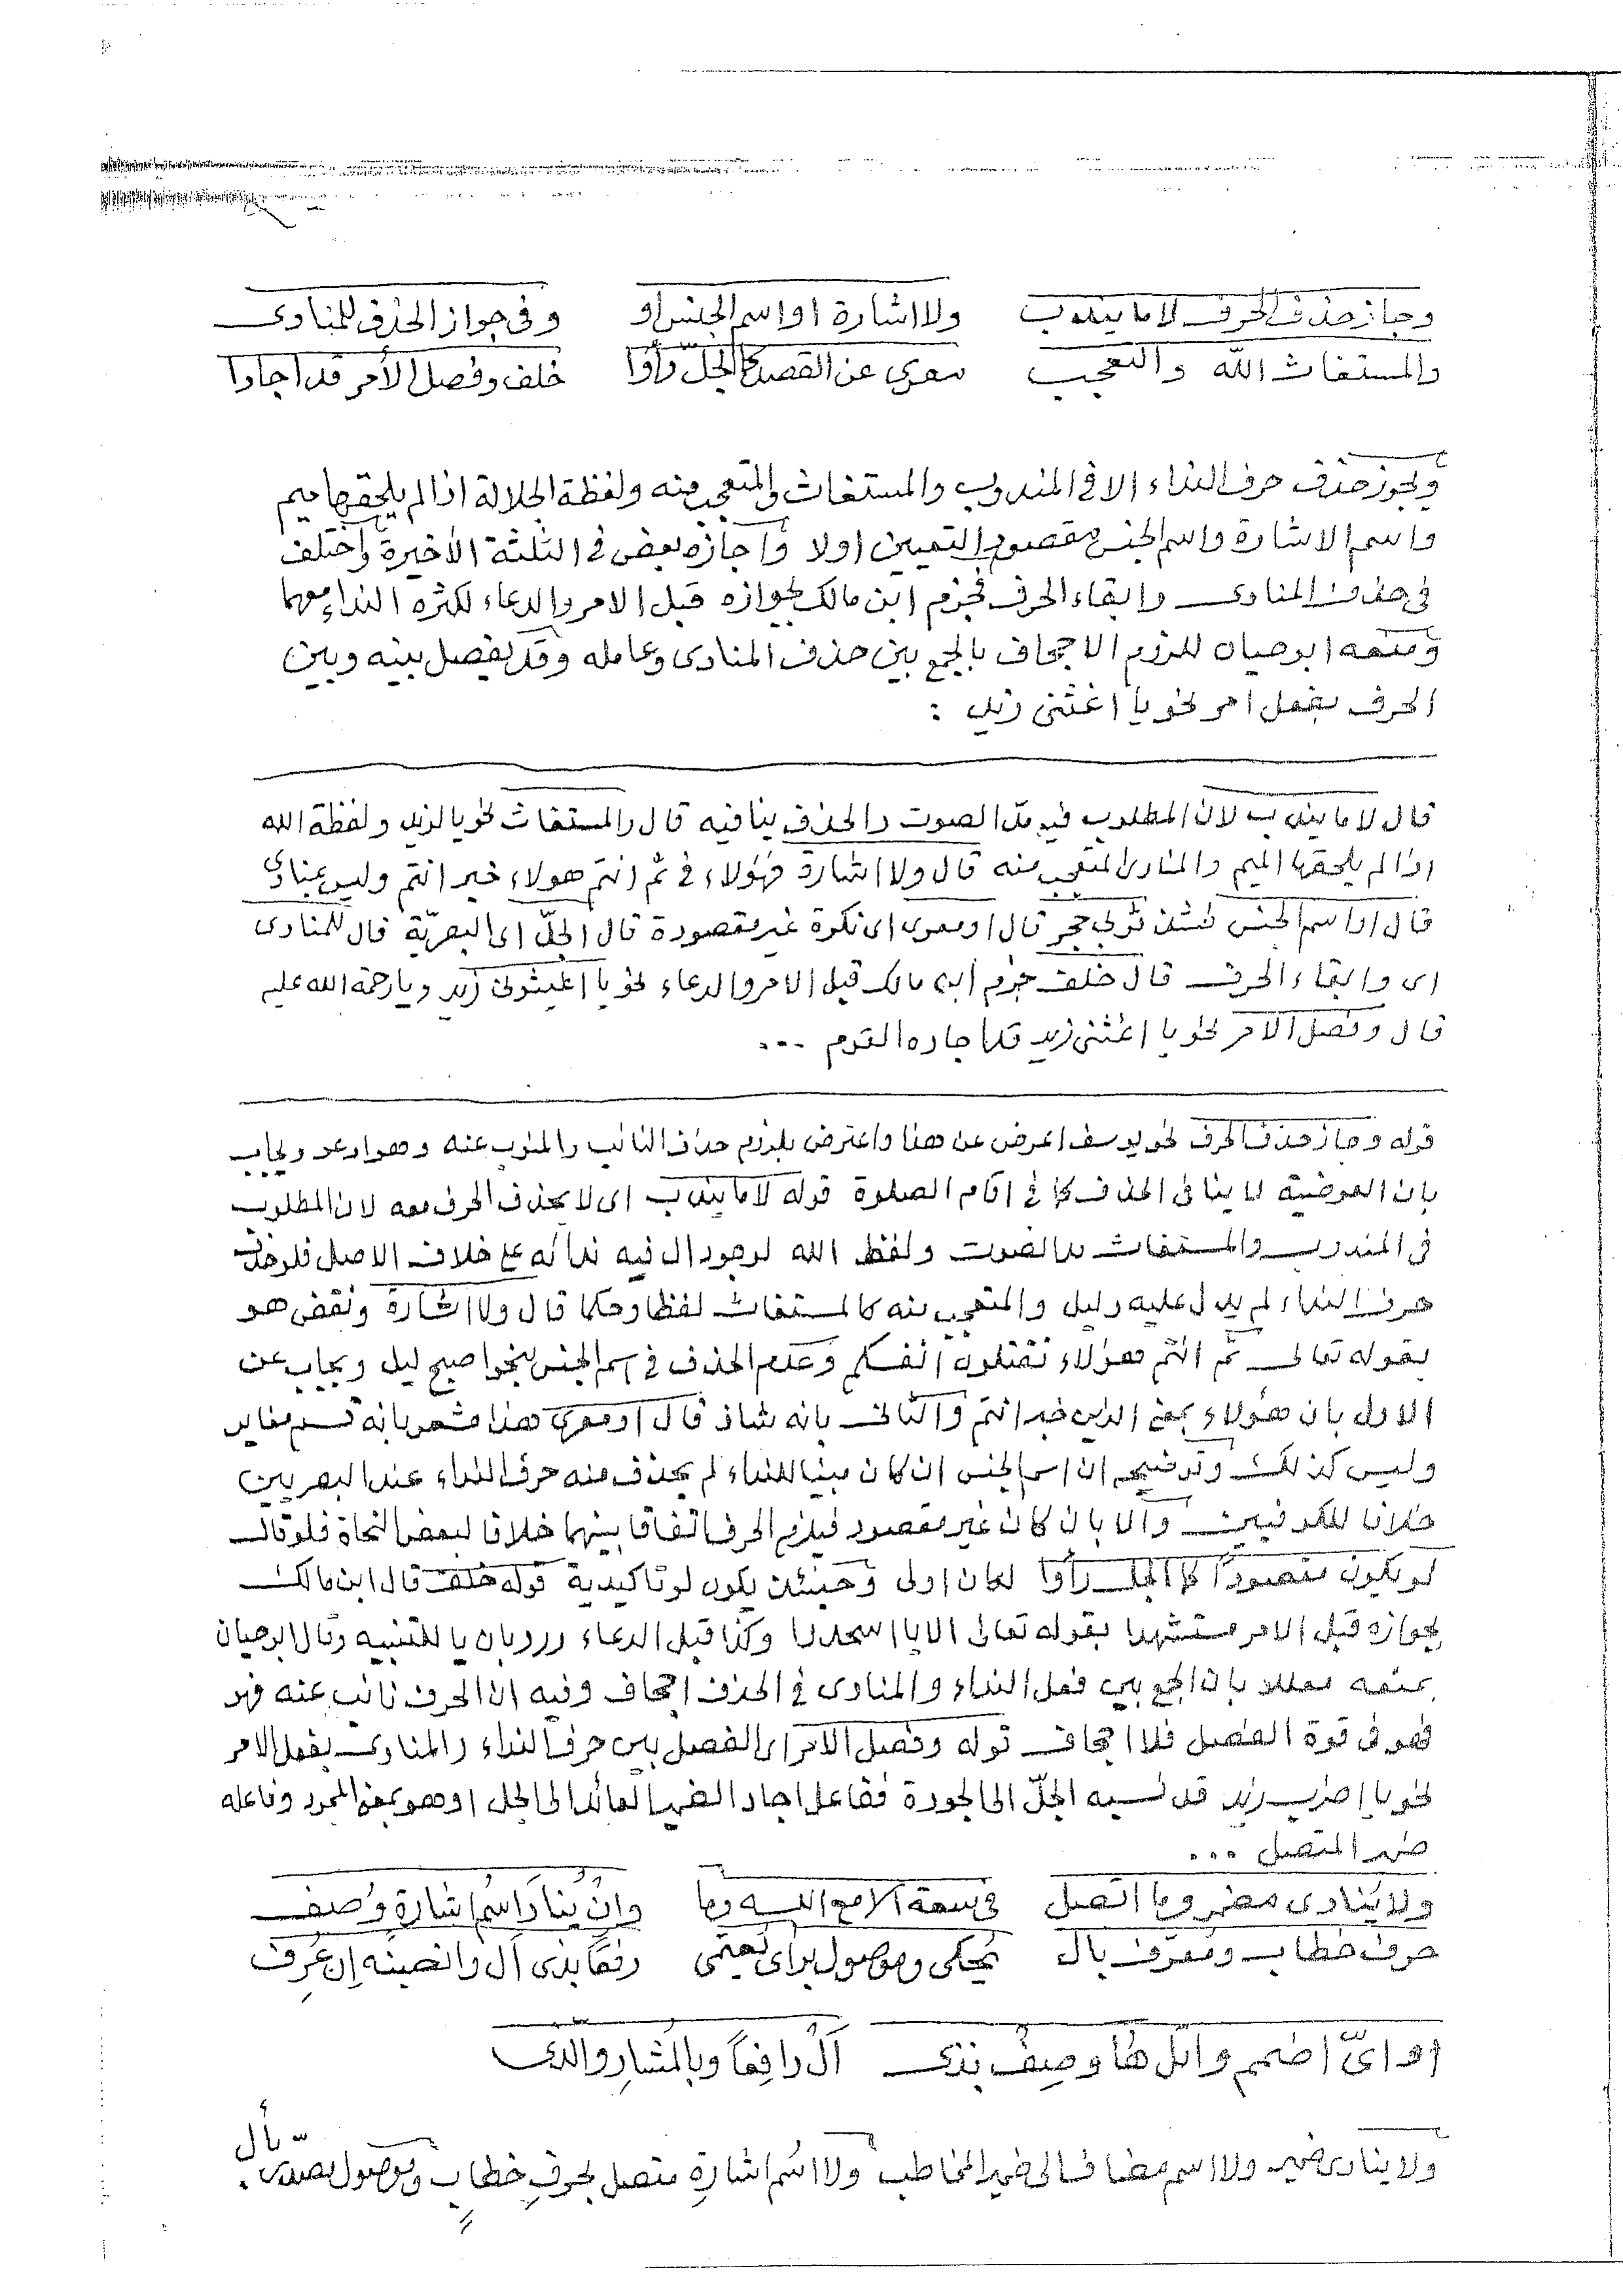 وجاز حذف الحرف لا ما يندب ولا اشارة او اسم الجنس او وفى جواز الحذف للمنادى
والمستغاث الله والتعجب معرى عن القصد كما الجلّ رأوا خلف وفصل الأمر قد اجادا
ويجوز حذف حرف النداء الا فى المندوب والمستغاث والمتعجب منه ولفظة الجلالة اذا لم يلحقها ميم
واسم الاشارة واسم الجنس مقصود التعيين اولا وأجازه بعض فى الثلثة الأخيرة واختلف
فى حذف المنادى وابقاء الحرف فجزم ابن مالك بجوازه قبل الامر والدعاء لكثرة النداء معهما
ومنعه ابو حيان للزوم الاجحاف بالجمع بين حذف المنادى وعامله وقد يفصل بينه وبين
الحرف بفعل امر نحو يا اغثنى زيد :
قال لا ما يندب لان المطلوب فيه مد الصوت والحذف ينافيه قال والمستغاث نحو يا لزيد ولفظة الله
اذا لم يلحقها الميم والمنادى المتعجب منه قال ولا اشارة فهؤلاء فى ثم انتم هولاء خبر انتم وليس بمنادى
قال او اسم الجنس فشذ ثوبى حجر قال او معرى اى نكرة غير مقصودة قال الجلّ اى البصريّة قال للمنادى
اى وابقاء الحرف قال خلف جزم ابن مالك قبل الامر والدعاء نحو يا اغيثونى زيد ويا رحمة الله عليه
قال وفصل الامر نحو يا اغثنى زيد قد اجاده القوم ...
قوله وجاز حذف الحرف نحو يوسف اعرض عن هذا واعترض بلزوم حذف النائب والمنوب عنه وهو ادعو ويجاب
بان العوضية لا ينافى الحذف كما فى اقام الصلوة قوله لا ما يندب اى لا يحذف الحرف معه لان المطلوب
فى المندوب والمستغاث مد الصوت ولفظ الله لوجود ال فيه ندائه على خلاف الاصل فلو حذف
حرف النداء لم يدل عليه دليل والمتعجب منه كالمستغاث لفظا وحكما قال ولا اشارة ونقض هو
بقوله تعالى ثم انتم هؤلاء تقتلون انفسكم وعدم الحذف فى اسم الجنس بنحو اصبح ليل ويجاب عن
الاول بان هؤلاء بمعنى الذين خبر انتم والثانى بانه شاذ قال او معرى هذا مشعر بانه قسم مغاير
وليس كذلك وتوضيحه ان اسم الجنس ان كان مبنيا للنداء لم يحذف منه حرف النداء عند البصريين
خلافا للكوفيين والا بان كان غير مقصود فيلزم الحرف اتفاقا بينهما خلافا لبعض النحاة فلو قال
لو يكون مقصوداً كما الجل رأوا لكان اولى وحينئذ يكون لو تاكيدية قوله خلف قال ابن مالك
بجوازه قبل الامر مستشهدا بقوله تعالى الا يا اسجدوا وكذا قبل الدعاء ورد بان يا للتنبيه وقال ابو حيان
بمنعه معللا بان الجمع بين فعل النداء والمنادى فى الحذف اجحاف وفيه ان الحرف نائب عنه فهو
فهو فى قوة الفصل فلا اجحاف قوله وفصل الامر اى الفصل بين حرف النداء والمنادى بفعل الامر
نحو يا اضرب زيد قد نسبه الجلّ الى الجودة ففاعل اجاد الضمير العائد الى الجل او هو بمعنى المجرد وفاعله
ضمير المتصل ...
ولا يُنادى مضمر وما اتصل فى سعة الا مع الله وما وان يُنادَ اسمُ اشارةٍ وُصف
حرف خطاب ومعرّف بال يُحكى وموصول بدا اى نعيتمى رفعاً بذى أل وانصبنه إن عُرِف
او اىّ اضمم واتل ها وصِف بذى أل رافِعاً وبالمُشارِ والذى
ولا ينادى ضمير ولا اسم مضاف الى ضمير المخاطب ولا اسم اشارةٍ متصل بحرفِ خطابٍ وموصول بصدى بأل